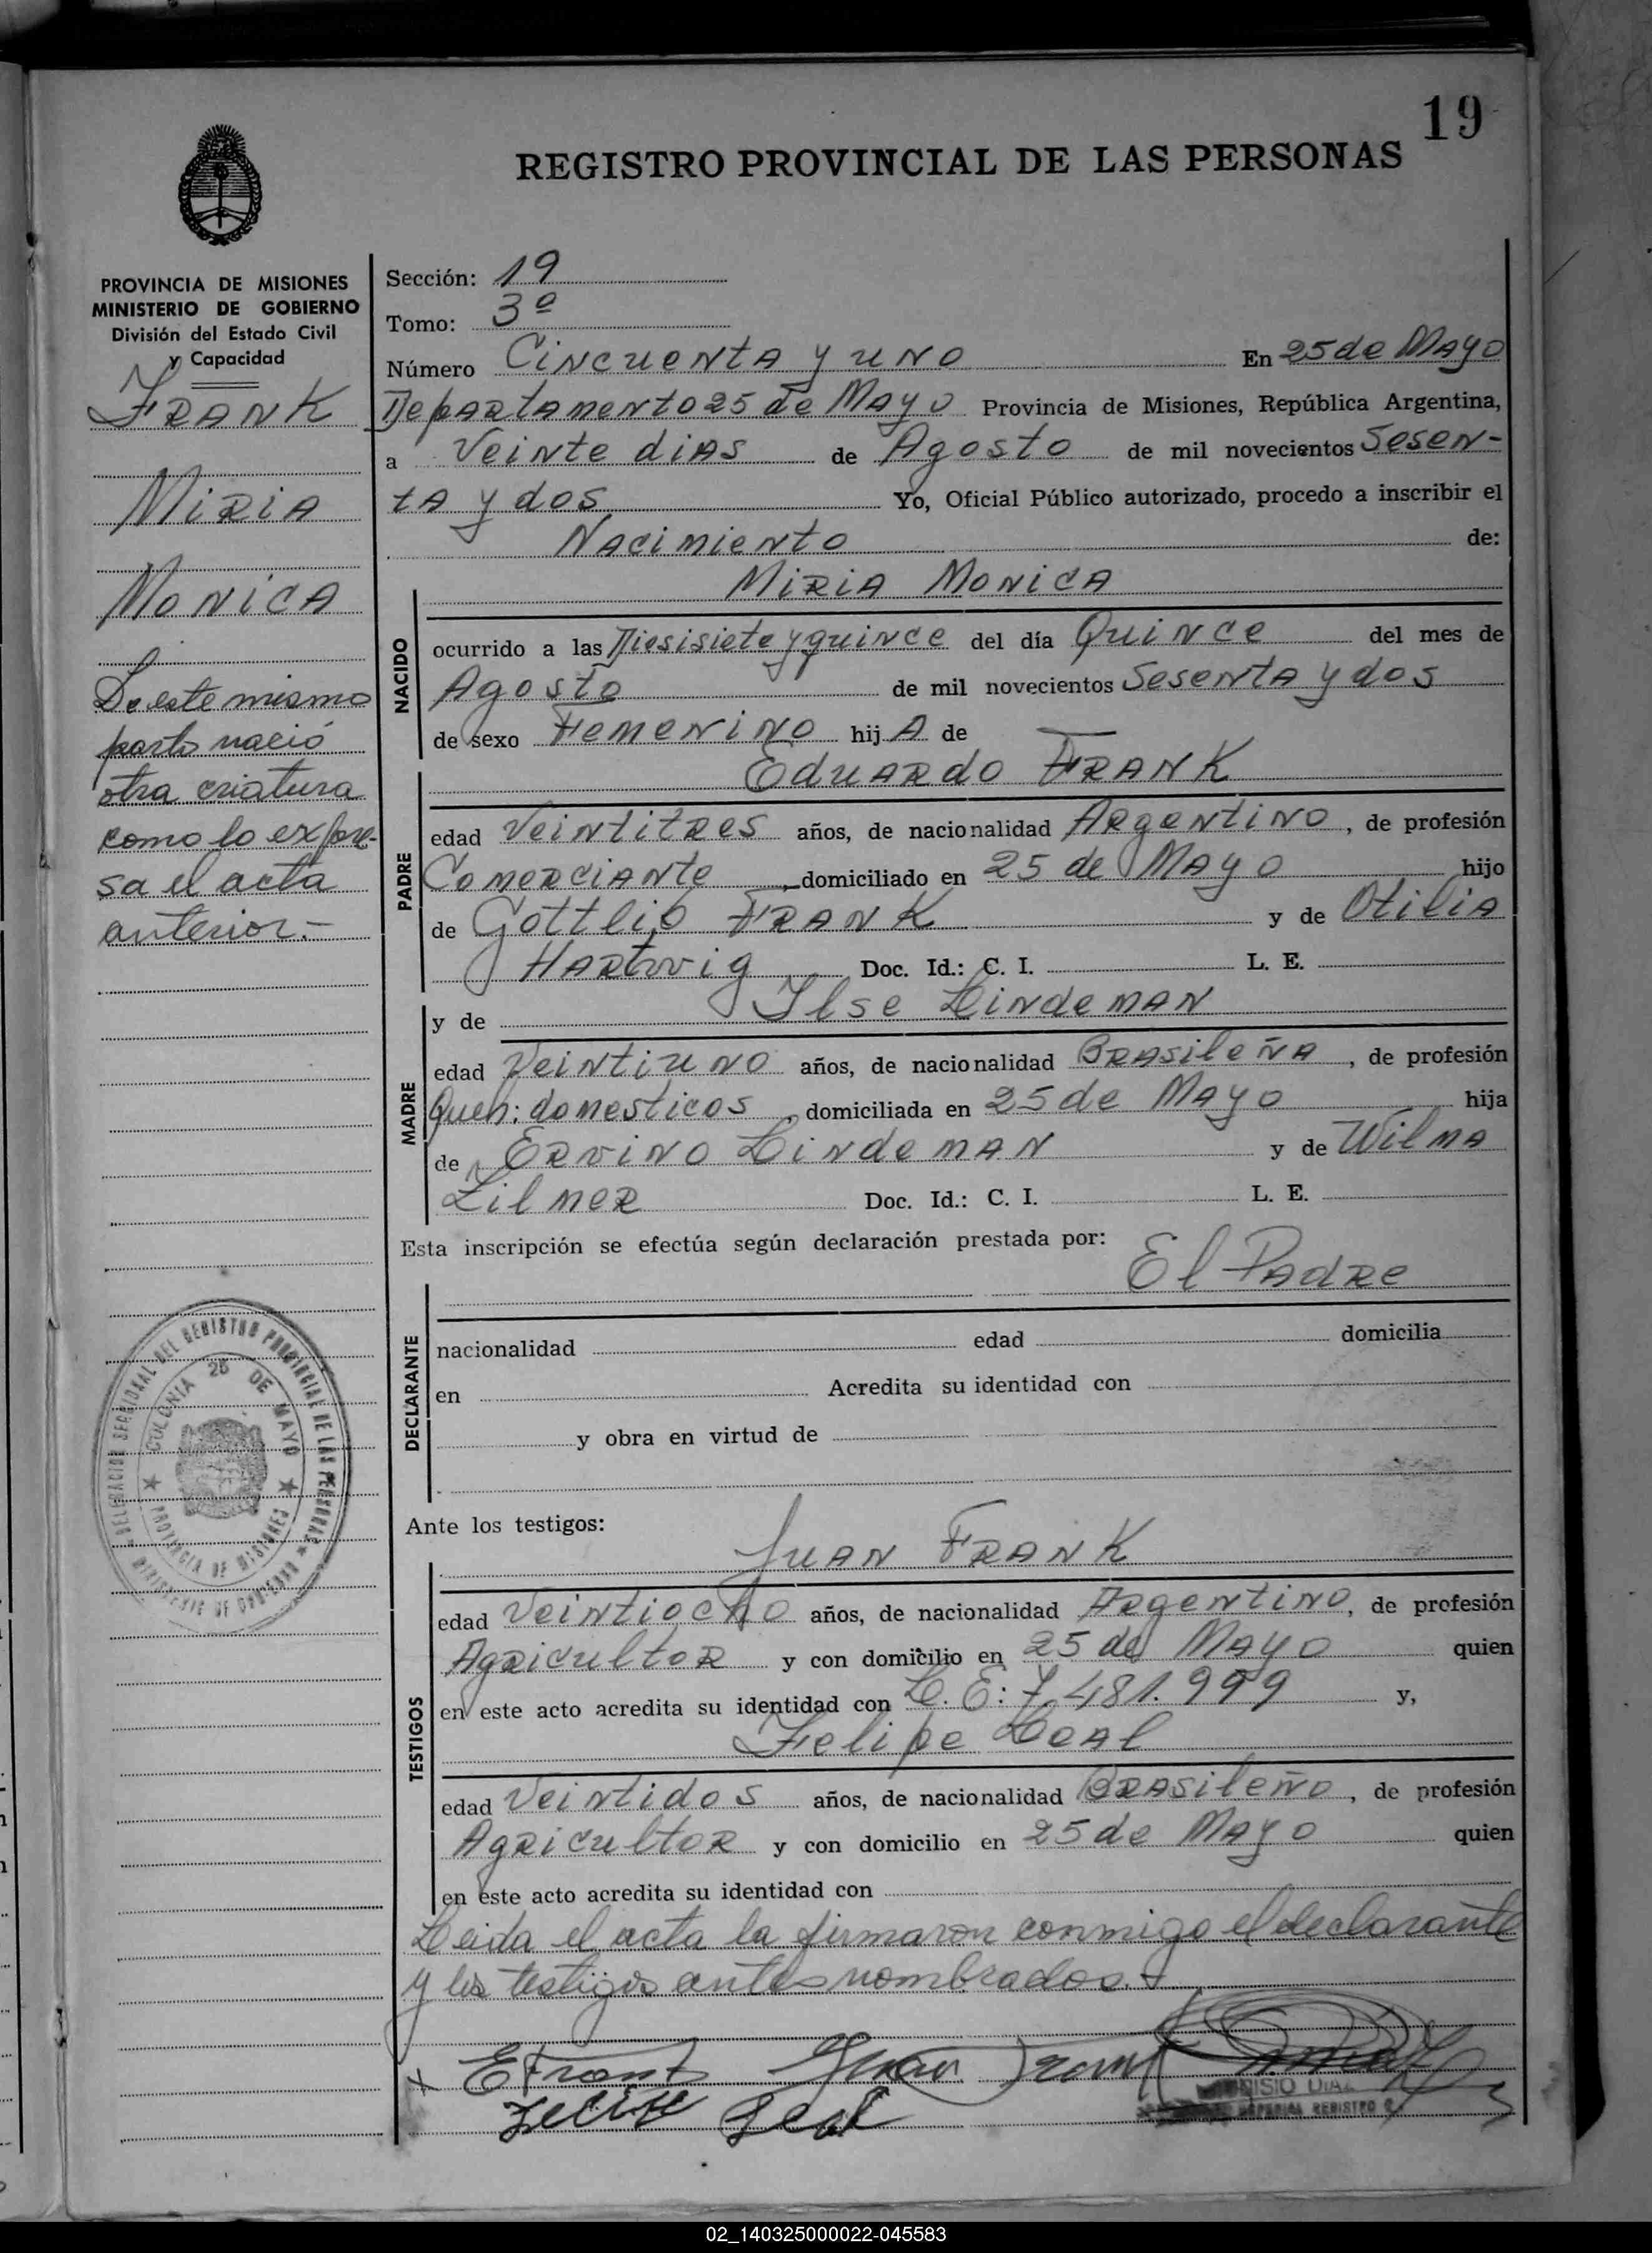 19
REGISTRO PROVINCIAL DE LAS PERSONAS
PROVINCIA DE MISIONES
MINISTERIO DE GOBIERNO
División del Estado Civil
y Capacidad
FRANK
MIRIA
MONICA
De este mismo
parto nació
otra criatura
como lo expre-
sa el acta
anterior.-
Sección: 19
Tomo: 3º
Número Cincuenta y uno En 25 de Mayo
Departamento 25 de Mayo Provincia de Misiones, República Argentina,
a Veinte dias de Agosto de mil novecientos Sesen-
ta y dos Yo, Oficial Público autorizado, procedo a inscribir el
Nacimiento de:
MIRIA MONICA
NACIDO
ocurrido a las Diesisiete y quince del día Quince del mes de
Agosto de mil novecientos Sesenta y dos
de sexo Femenino hij A de
Eduardo FRANK
PADRE
edad Veintitres años, de nacionalidad Argentino, de profesión
Comerciante, domiciliado en 25 de Mayo hijo
de Gottlib FRANK y de Otilia
Hartwig Doc. Id.: C. I. L. E.
y de Ilse Lindeman
MADRE
edad Veintiuno años, de nacionalidad Brasileña, de profesión
Queh: domesticos, domiciliada en 25 de Mayo hija
de Ervino Lindeman y de Wilma
Zilmer Doc. Id.: C. I. L. E.
Esta inscripción se efectúa según declaración prestada por:
El Padre
DECLARANTE
nacionalidad edad domicilia
en Acredita su identidad con
y obra en virtud de
Ante los testigos:
Juan FRANK
TESTIGOS
edad Veintiocho años, de nacionalidad Argentino, de profesión
Agricultor y con domicilio en 25 de Mayo quien
en este acto acredita su identidad con L. E: 7.481.999 y,
Felipe Leal
edad Veintidos años, de nacionalidad Brasileño, de profesión
Agricultor y con domicilio en 25 de Mayo quien
en este acto acredita su identidad con
Leida el acta la firmaron conmigo el declarante
y los testigos antes nombrados.-
E Frank Juan Frank
Felipe Leal
DELEGACION SECCIONAL DEL REGISTRO PROVINCIAL DE LAS PERSONAS
MINISTERIO DE GOBIERNO
COLONIA 25 DE MAYO
PROVINCIA DE MISIONES
02_140325000022-045583